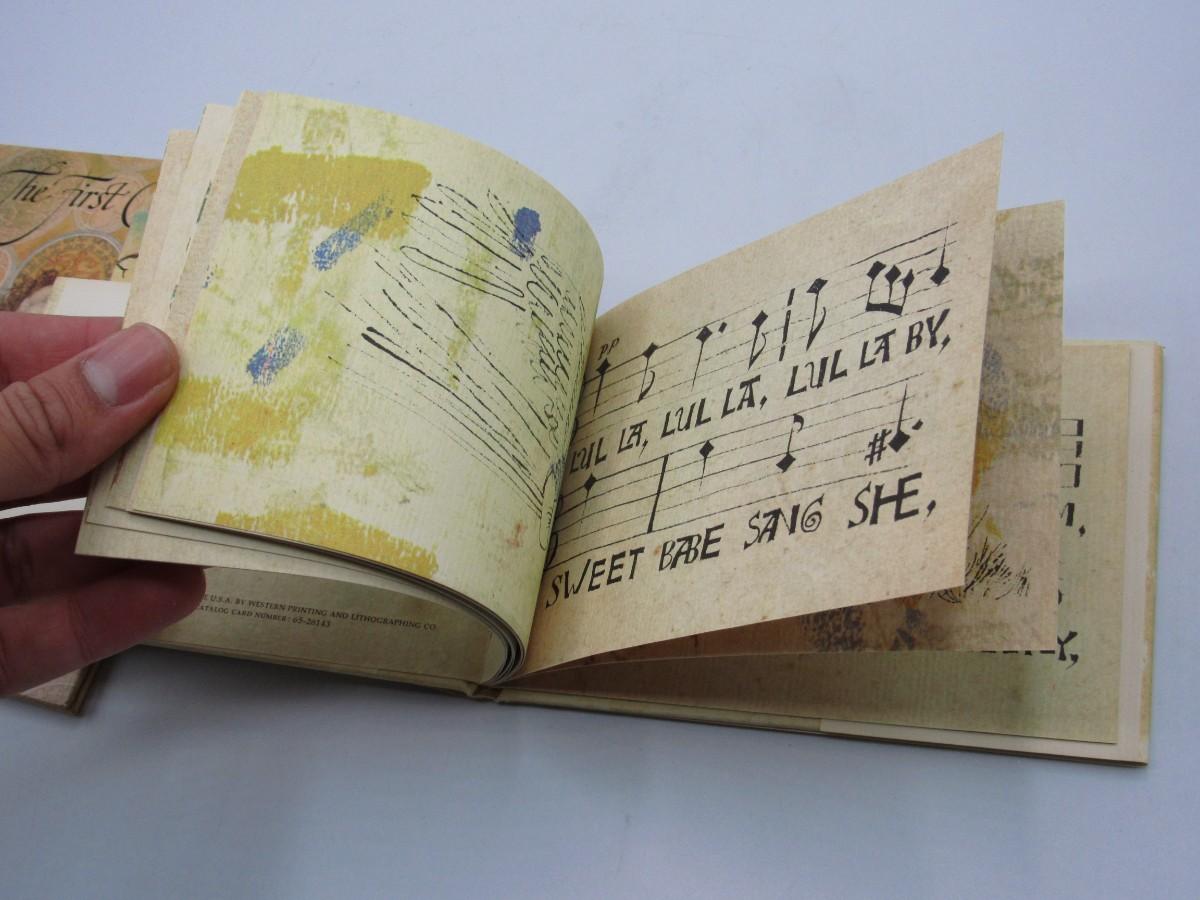 The First
U.S.A. BY WESTERN PRINTING AND LITHOGRAPHING CO.
CATALOG CARD NUMBER: 65-26143
pp
LUL LA, LUL LA, LUL LA BY,
SWEET BABE SANG SHE,